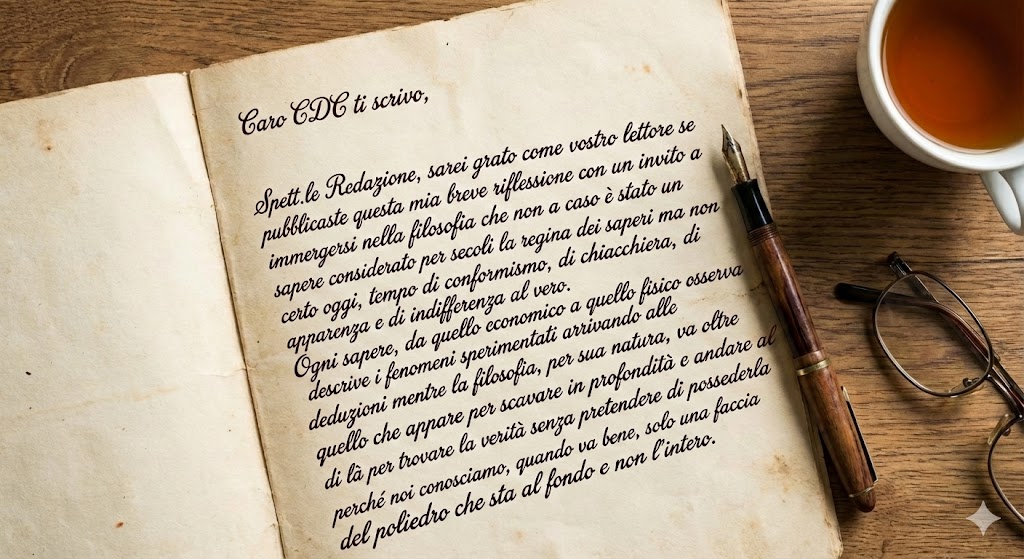 Caro CDC ti scrivo,
Spett.le Redazione, sarei grato come vostro lettore se
pubblicaste questa mia breve riflessione con un invito a
immergersi nella filosofia che non a caso è stato un
sapere considerato per secoli la regina dei saperi ma non
certo oggi, tempo di conformismo, di chiacchiera, di
apparenza e di indifferenza al vero.
Ogni sapere, da quello economico a quello fisico osserva
descrive i fenomeni sperimentati arrivando alle
deduzioni mentre la filosofia, per sua natura, va oltre
quello che appare per scavare in profondità e andare al
di là per trovare la verità senza pretendere di possederla
perché noi conosciamo, quando va bene, solo una faccia
del poliedro che sta al fondo e non l'intero.